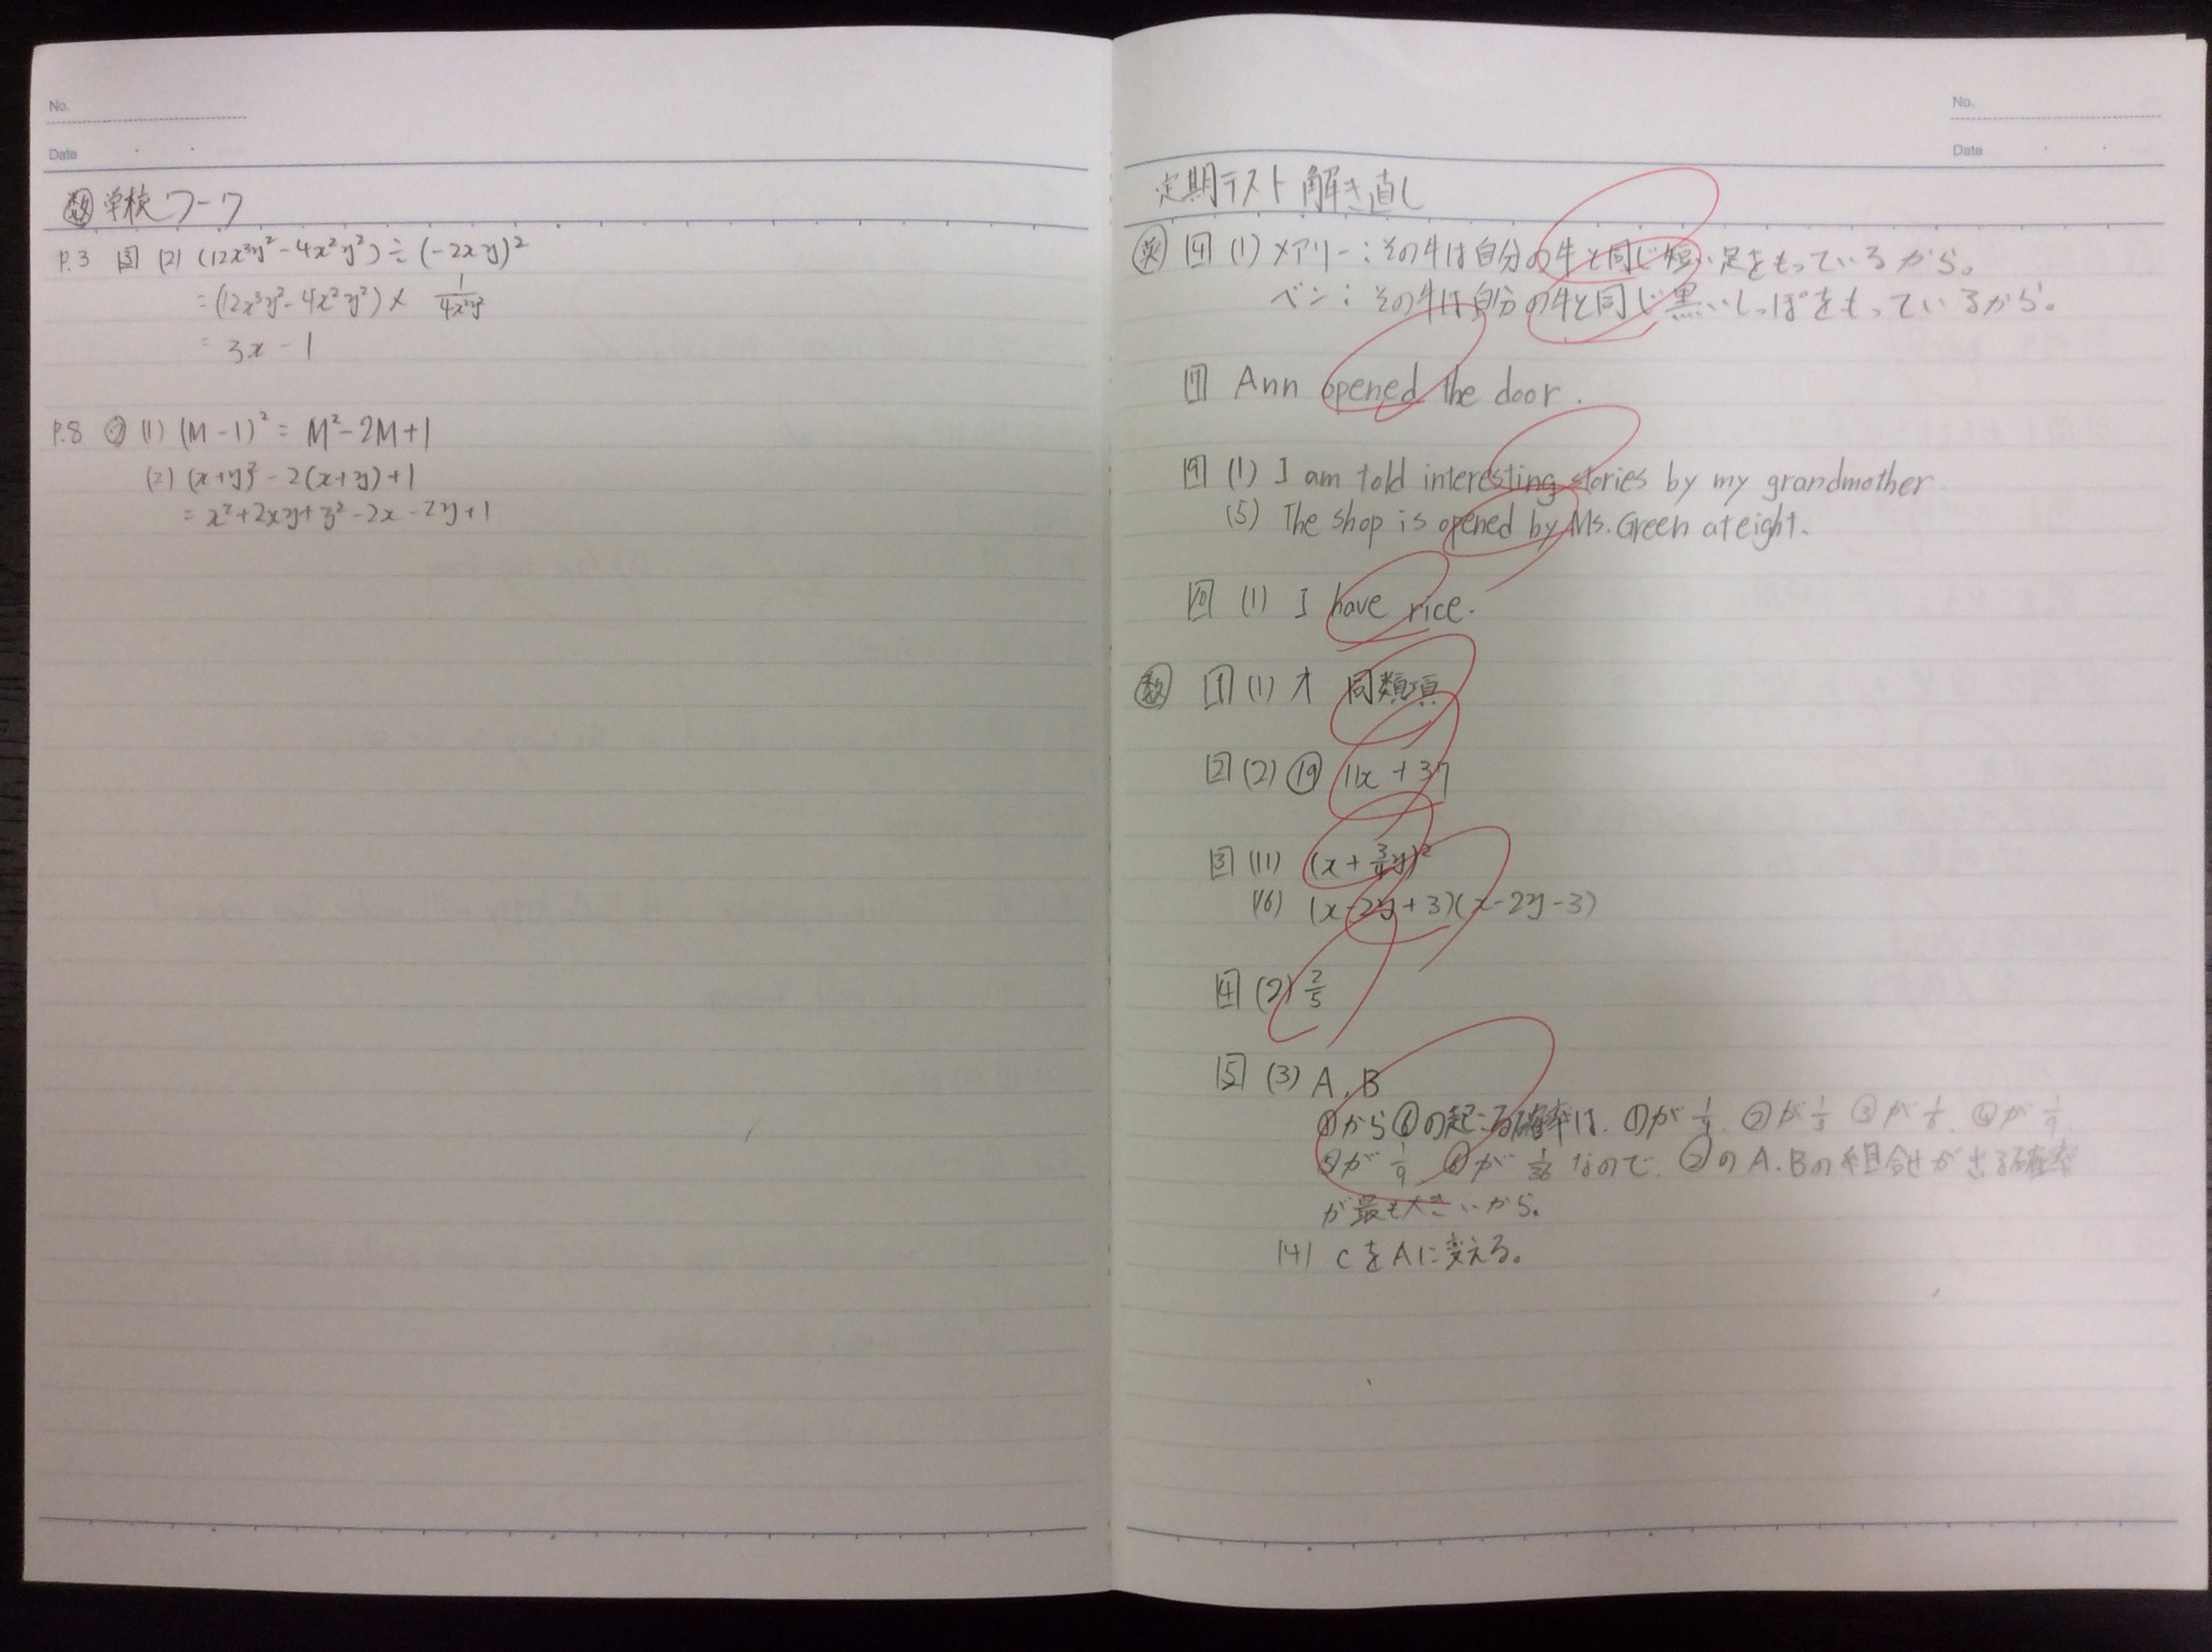 No.
Date
㊝学校ワーク
P.3 3 (2) (12x³y²-4x²y²)÷(-2xy)²
=(12x³y²-4x²y²)× 1/4x²y²
= 3x-1
P.8 (1) (M-1)² = M²-2M+1
(2) (x+y)²-2(x+y)+1
= x²+2xy+y²-2x-2y+1
No.
Date
定期テスト解き直し
英 4 (1) メアリー:その牛は自分の牛と同じ短い足をもっているから。
ベン:その牛は自分の牛と同じ黒いしっぽをもっているから。
7 Ann opened the door.
9 (1) I am told interesting stories by my grandmother.
(5) The shop is opened by Ms. Green at eight.
10 (1) I have rice.
数 1 (1) オ 同類項
2 (2) ⑲ 11x+37
3 (11) (x+3/4y)²
(16) (x-2y+3)(x-2y-3)
4 (2) 2/5
5 (3) A, B
①から⑥の起こる確率は、①が 1/9、②が 1/3 ③が 1/6、④が 1/9
⑤が 1/9 ⑥が 1/36 なので、②の A、Bの組合せが出る確率
が最も大きいから。
(4) CをAに変える。